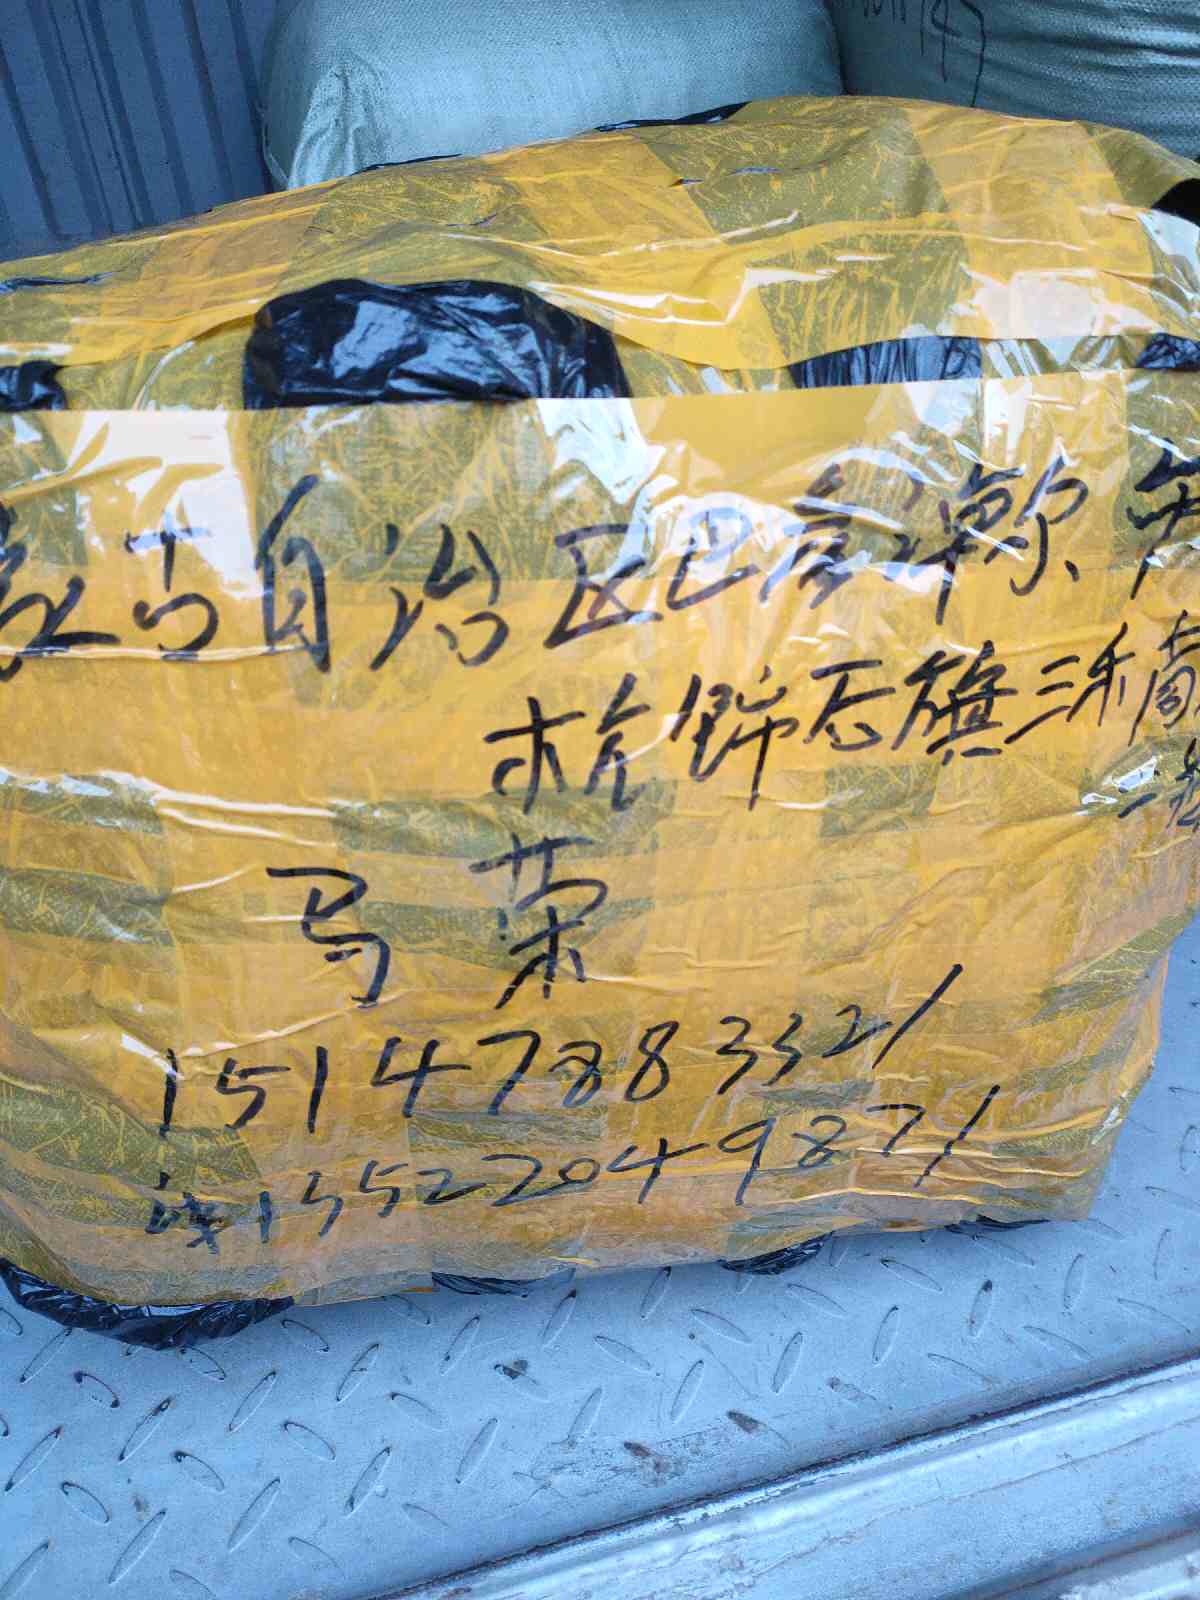 蒙古自治区巴彦淖尔市
杭锦后旗三
马荣
15147883321
或13522049871